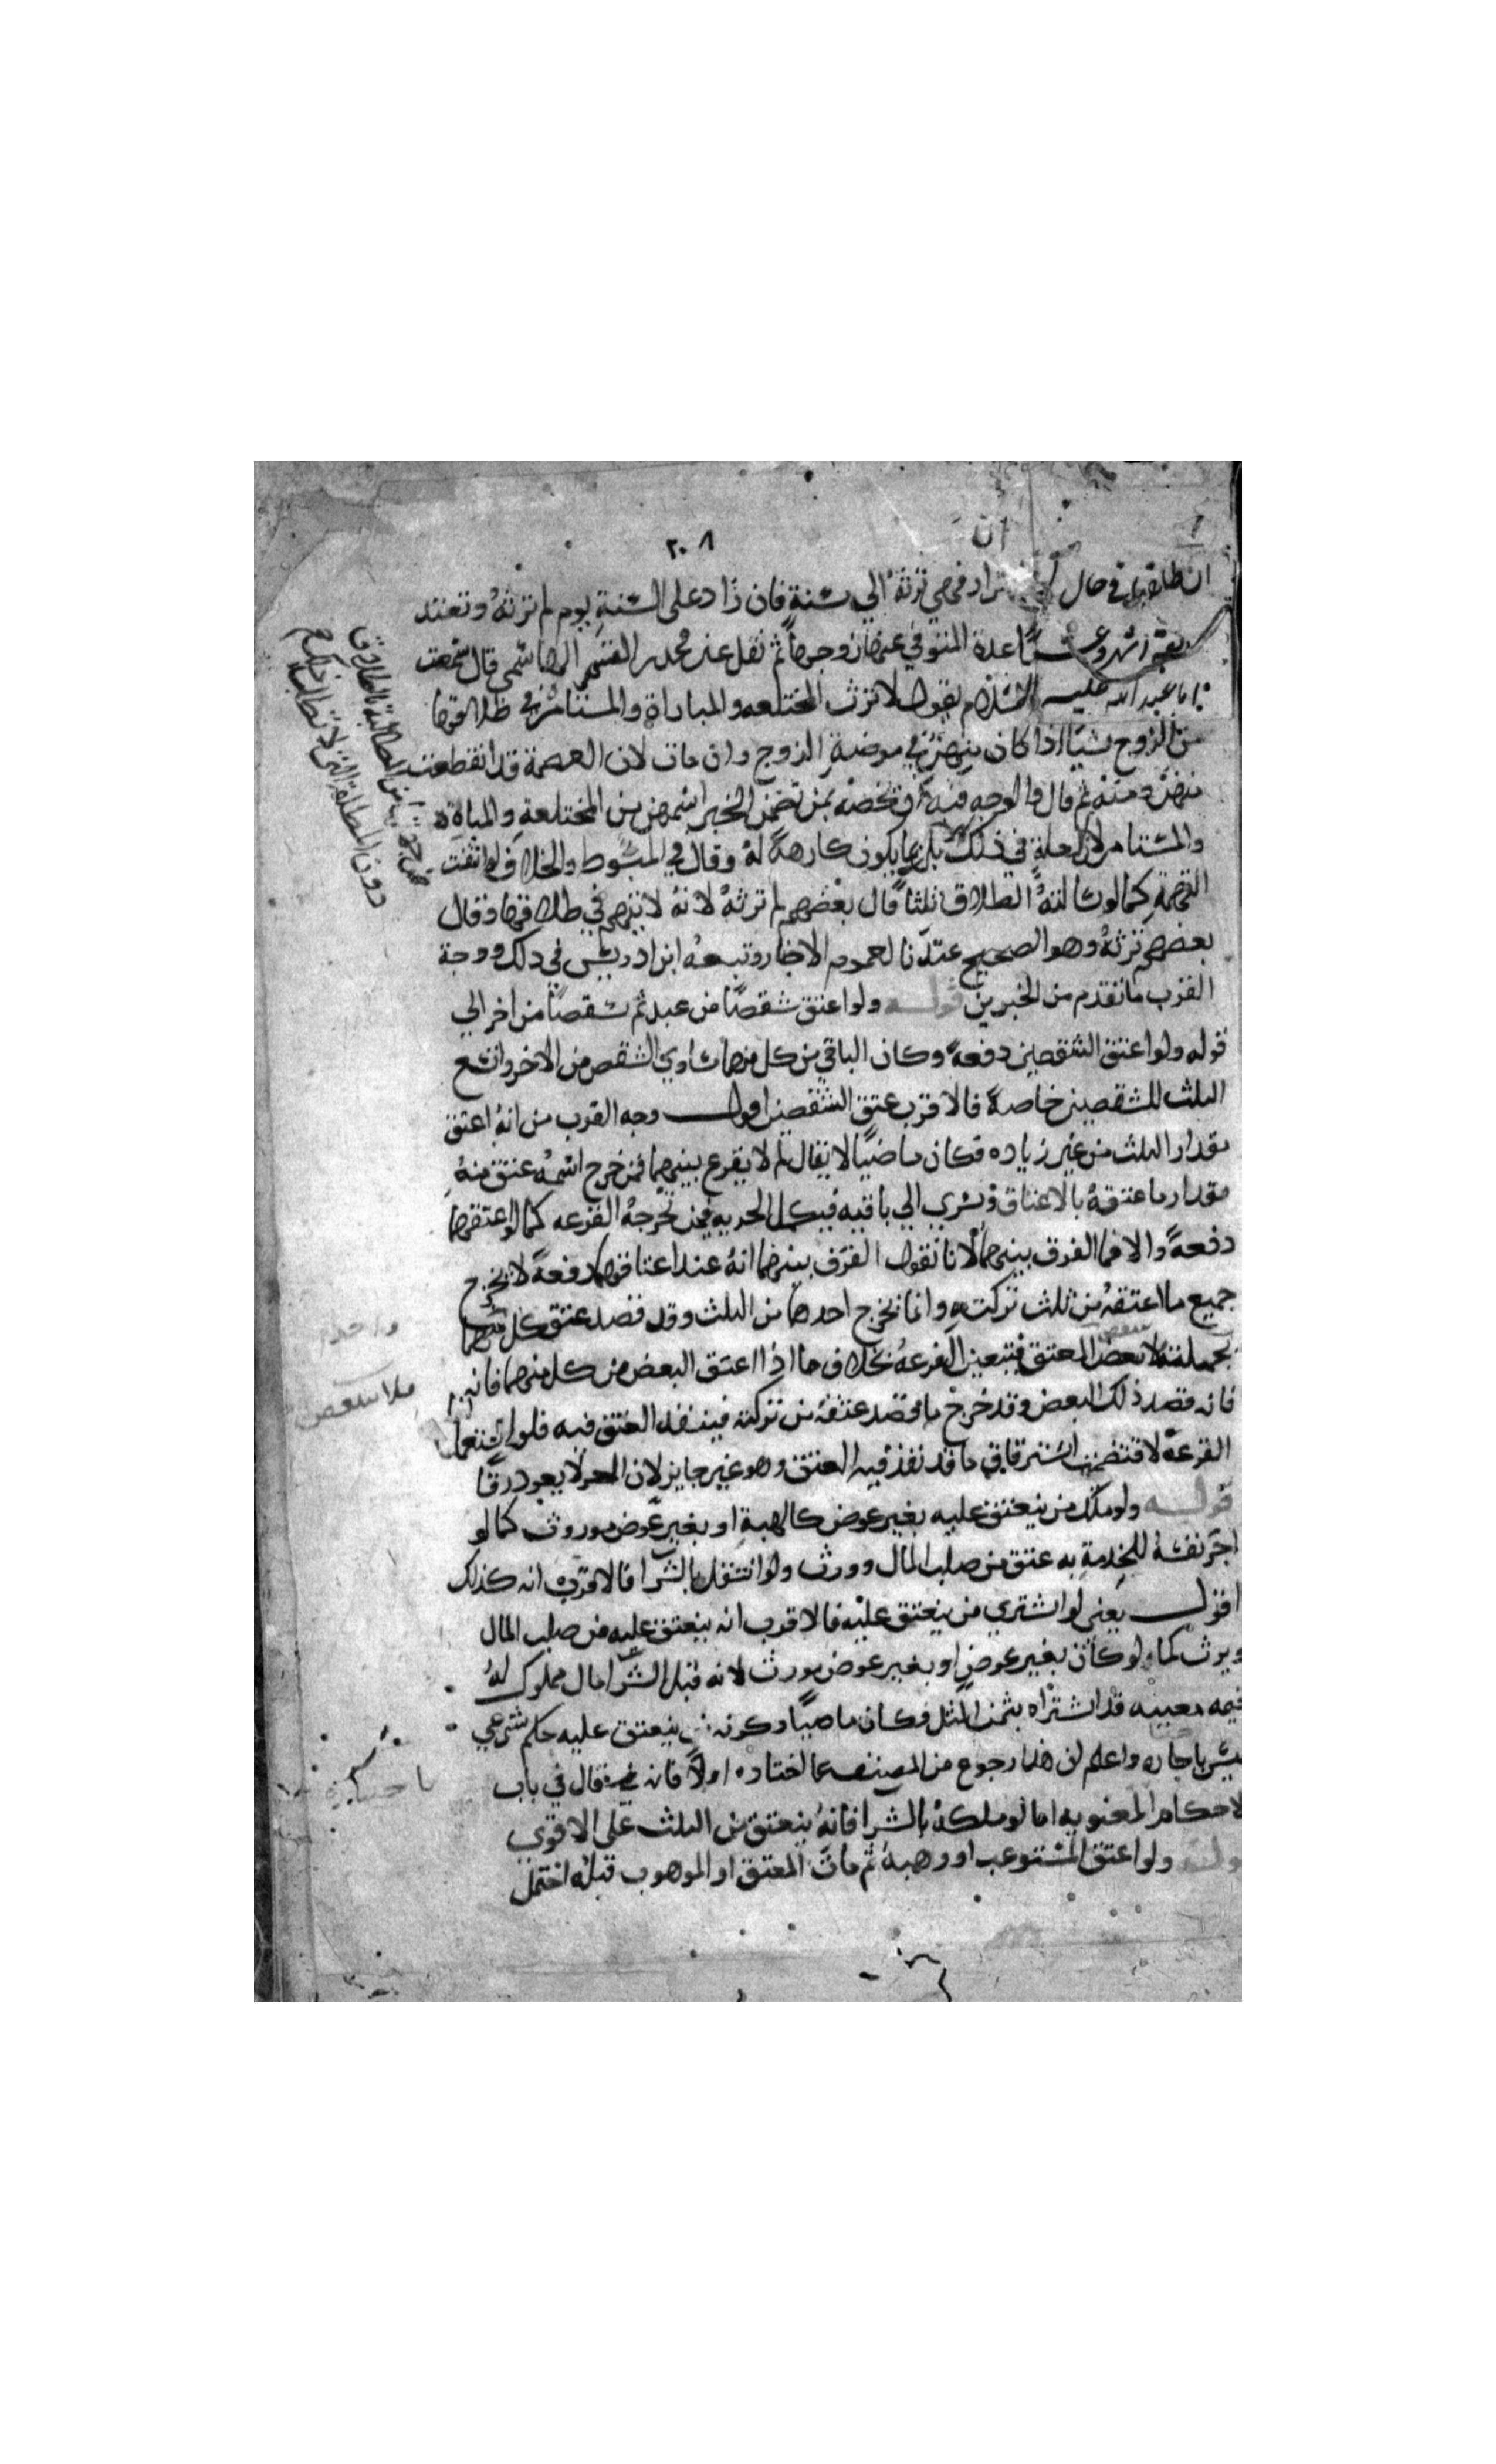 ٢٠٨
ان
ان طلقها في حال الاضرار فهي ترثه الي سنة فان زاد علي السنة يوم لم ترثه وتعتد
اربعة اشهر وعشرا عدة المتوفي عنها زوجها ثم نقل عن محمد بن القسم الهاشمي قال سمعت
ابا عبد الله عليه السلام يقول لا ترث المختلعه والمباراة والمستامرة في طلاقها
من الزوج شيا اذا كان منهن في مرض الزوج وان مات لان العصمة قد انقطعت
منهن ومنه ثم قال والوجه فيه ان نخصه بمن تضمن الخبر اسمهن من المختلعة والمباراة
والمستامر لان العلة في ذلك بكونها يكون كارهة له وقال في المبسوط والخلاف لو انتفت
التهمة كما لو سالته الطلاق ثلثا قال بعضهم لم ترثه لانه لا يتهم في طلاقها وقال
بعضهم ترثه وهو الصحيح عندنا لعموم الاخبار وتبعه ابن ادريس في ذلك ووجه
القرب ما تقدم من الخبرين قوله ولو اعتق شقصا من عبد ثم شقصا من اخر الي
قوله ولو اعتق الشقصين دفعة وكان الباقي من كل منهما يساوي الشقص من الاخر واتسع
الثلث للشقصين خاصة فالاقرب عتق الشقصين اقول وجه القرب من انه اعتق
مقدار الثلث من غير زياده فكان ماضيا لا يقال لم لا يقرع بينهما فمن خرج اسمه عتق منه
مقدار ما عتقه بالاعتاق ويسري الي باقيه فيكمل الحريه فيمن تخرجه القرعه كما لو اعتقهما
دفعة والا فما الفرق بينهما لانا نقول الفرق بينهما انه عند اعتاقهما دفعة لا يخرج
جميع ما اعتقه من ثلث تركته وانما يخرج احدهما من الثلث وقد قصد عتق كل منهما
بجملته لا بعض المعتق فتتعين القرعه بخلاف ما اذا اعتق البعض من كل منهما فانه
فانه قصد ذلك البعض وقد خرج ما قصد عتقه من تركته فينفذ العتق فيه فلو استعمل
القرعة لاقتضت استرقاق ما قد نفذ فيه العتق وهو غير جايز لان الحر لا يعود رقا
قوله ولو ملك من ينعتق عليه بغير عوض كالهبة او بغير عوض موروث كما لو
اجر نفسه للخدمة به عتق من صلب المال وورث ولو انتقل بالشرا فالاقرب انه كذلك
اقول يعني لو اشتري من ينعتق عليه فالاقرب انه ينعتق عليه من صلب المال
ويرث كما لو كان بغير عوض او بغير عوض مورث لانه قبل الشرا مال مملوك له
قيمه معينه قد اشتراه بثمن المثل فكان ماضيا وكونه ينعتق عليه حكم شرعي
ليس باختياره واعلم ان هذا رجوع من المصنف عما اختاره اولا فانه قال في باب
الاحكام المعنويه اما لو ملكه بالشرا فانه ينعتق من الثلث علي الاقوي
قوله ولو اعتق المستوعب او وهبه ثم مات المعتق او الموهوب قبله احتمل
دون المطلقة التي لا تطالبه
واحد
فلا ببعض